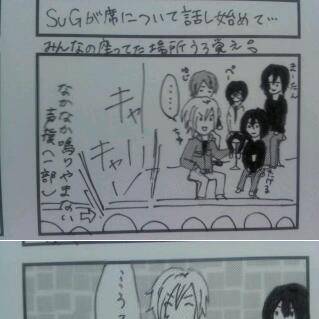 SuGが席について話し始めて…
みんなの座ってた場所うろ覚え
まーたん
ゆじ
ぺー
……
ちゆ
たける
キャー
キャー
なかなか鳴りやまない
声援(一部)
……う